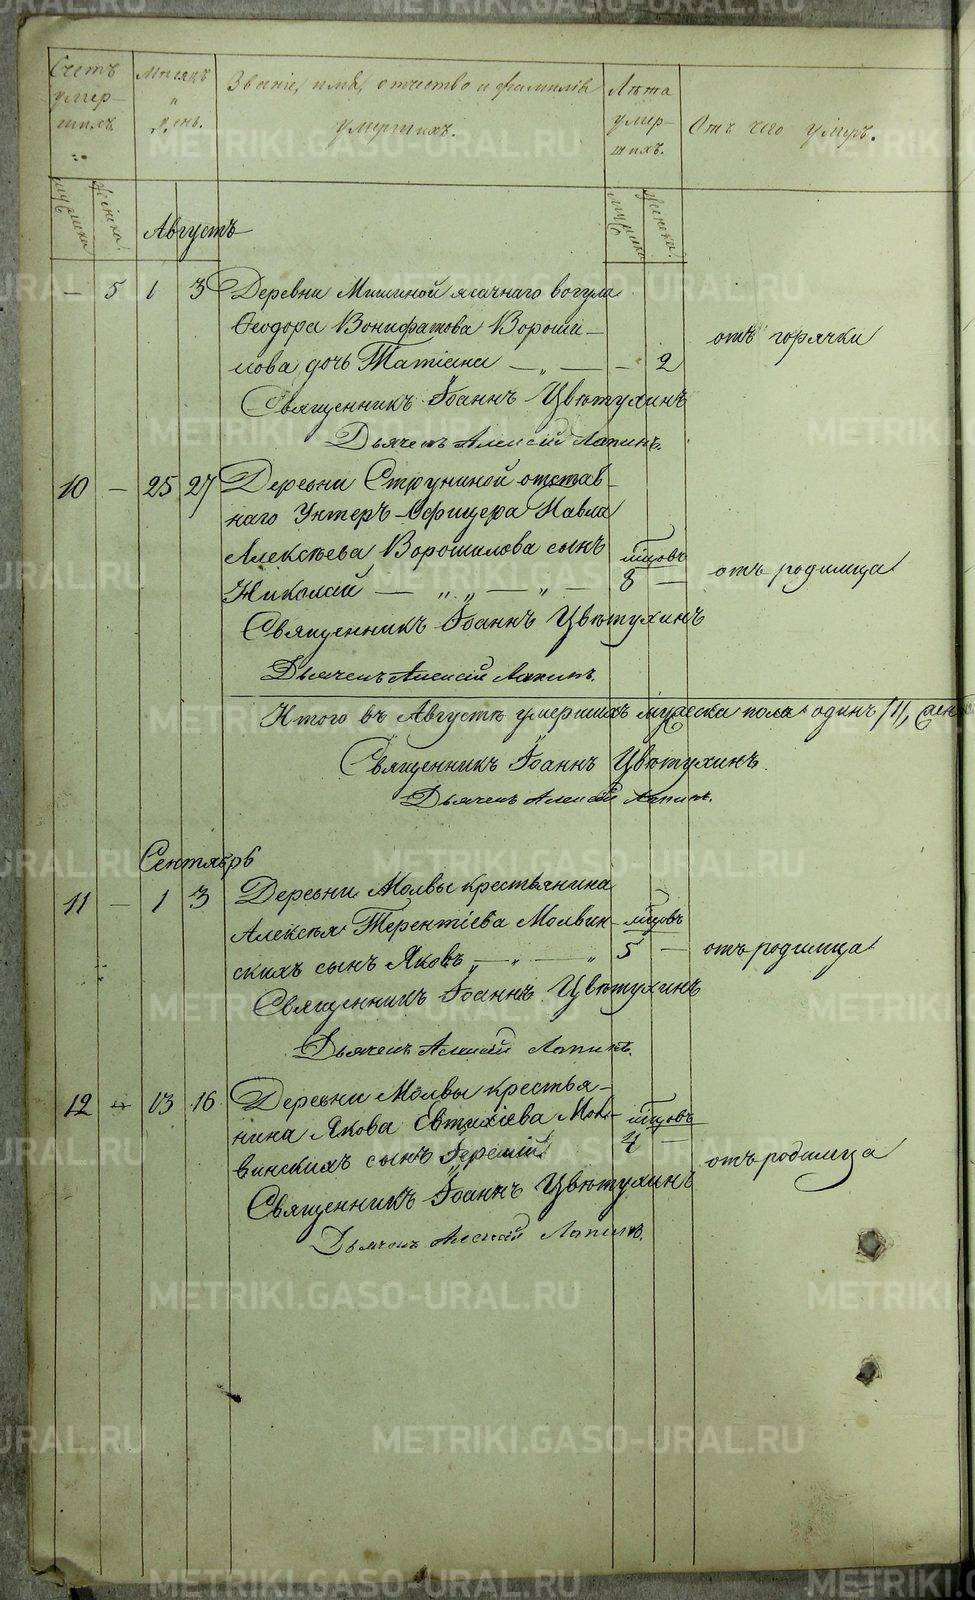 Счетъ умершихъ
Мѣсяцъ и день.
Званіе, имя, отчество и фамилія умершихъ.
Лѣта умершихъ.
Отъ чего умеръ.
мужска женска.
мужска женска.
Августъ
— 5 1 3 Деревни Мишиной ясачнаго вогула
Ѳеодора Вонифатова Вороши-
лова дочь Татіана — „ — — 2 отъ горячки
Священникъ Іоаннъ Цвѣтухинъ
Дьячекъ Алексій Лапинъ.
10 — 25 27 Деревни Струниной отстав-
наго Унтеръ-Офицера Павла
Алексѣева Ворошилова сынъ мѣсцовъ
Николай — „ „ — „ — 8 — отъ родимца
Священникъ Іоаннъ Цвѣтухинъ
Дьячекъ Алексій Лапинъ.
Итого въ Августѣ умершихъ мужеска пола одинъ /1/, женс
Священникъ Іоаннъ Цвѣтухинъ.
Дьячекъ Алексій Лапинъ.
Сентябрь
11 — 1 3 Деревни Молвы крестьянина
Алексѣя Терентіева Молвин- мѣсцовъ
скихъ сынъ Яковъ „ — „ — „ 5 — отъ родимца
Священникъ Іоаннъ Цвѣтухинъ
Дьячекъ Алексій Лапинъ.
12 — 13 16 Деревни Молвы крестья-
нина Якова Евтихіева Мол- мѣсцовъ
винскихъ сынъ Іеремій 4 — отъ родимца
Священникъ Іоаннъ Цвѣтухинъ
Дьячекъ Алексій Лапинъ.
METRIKI.GASO-URAL.RU